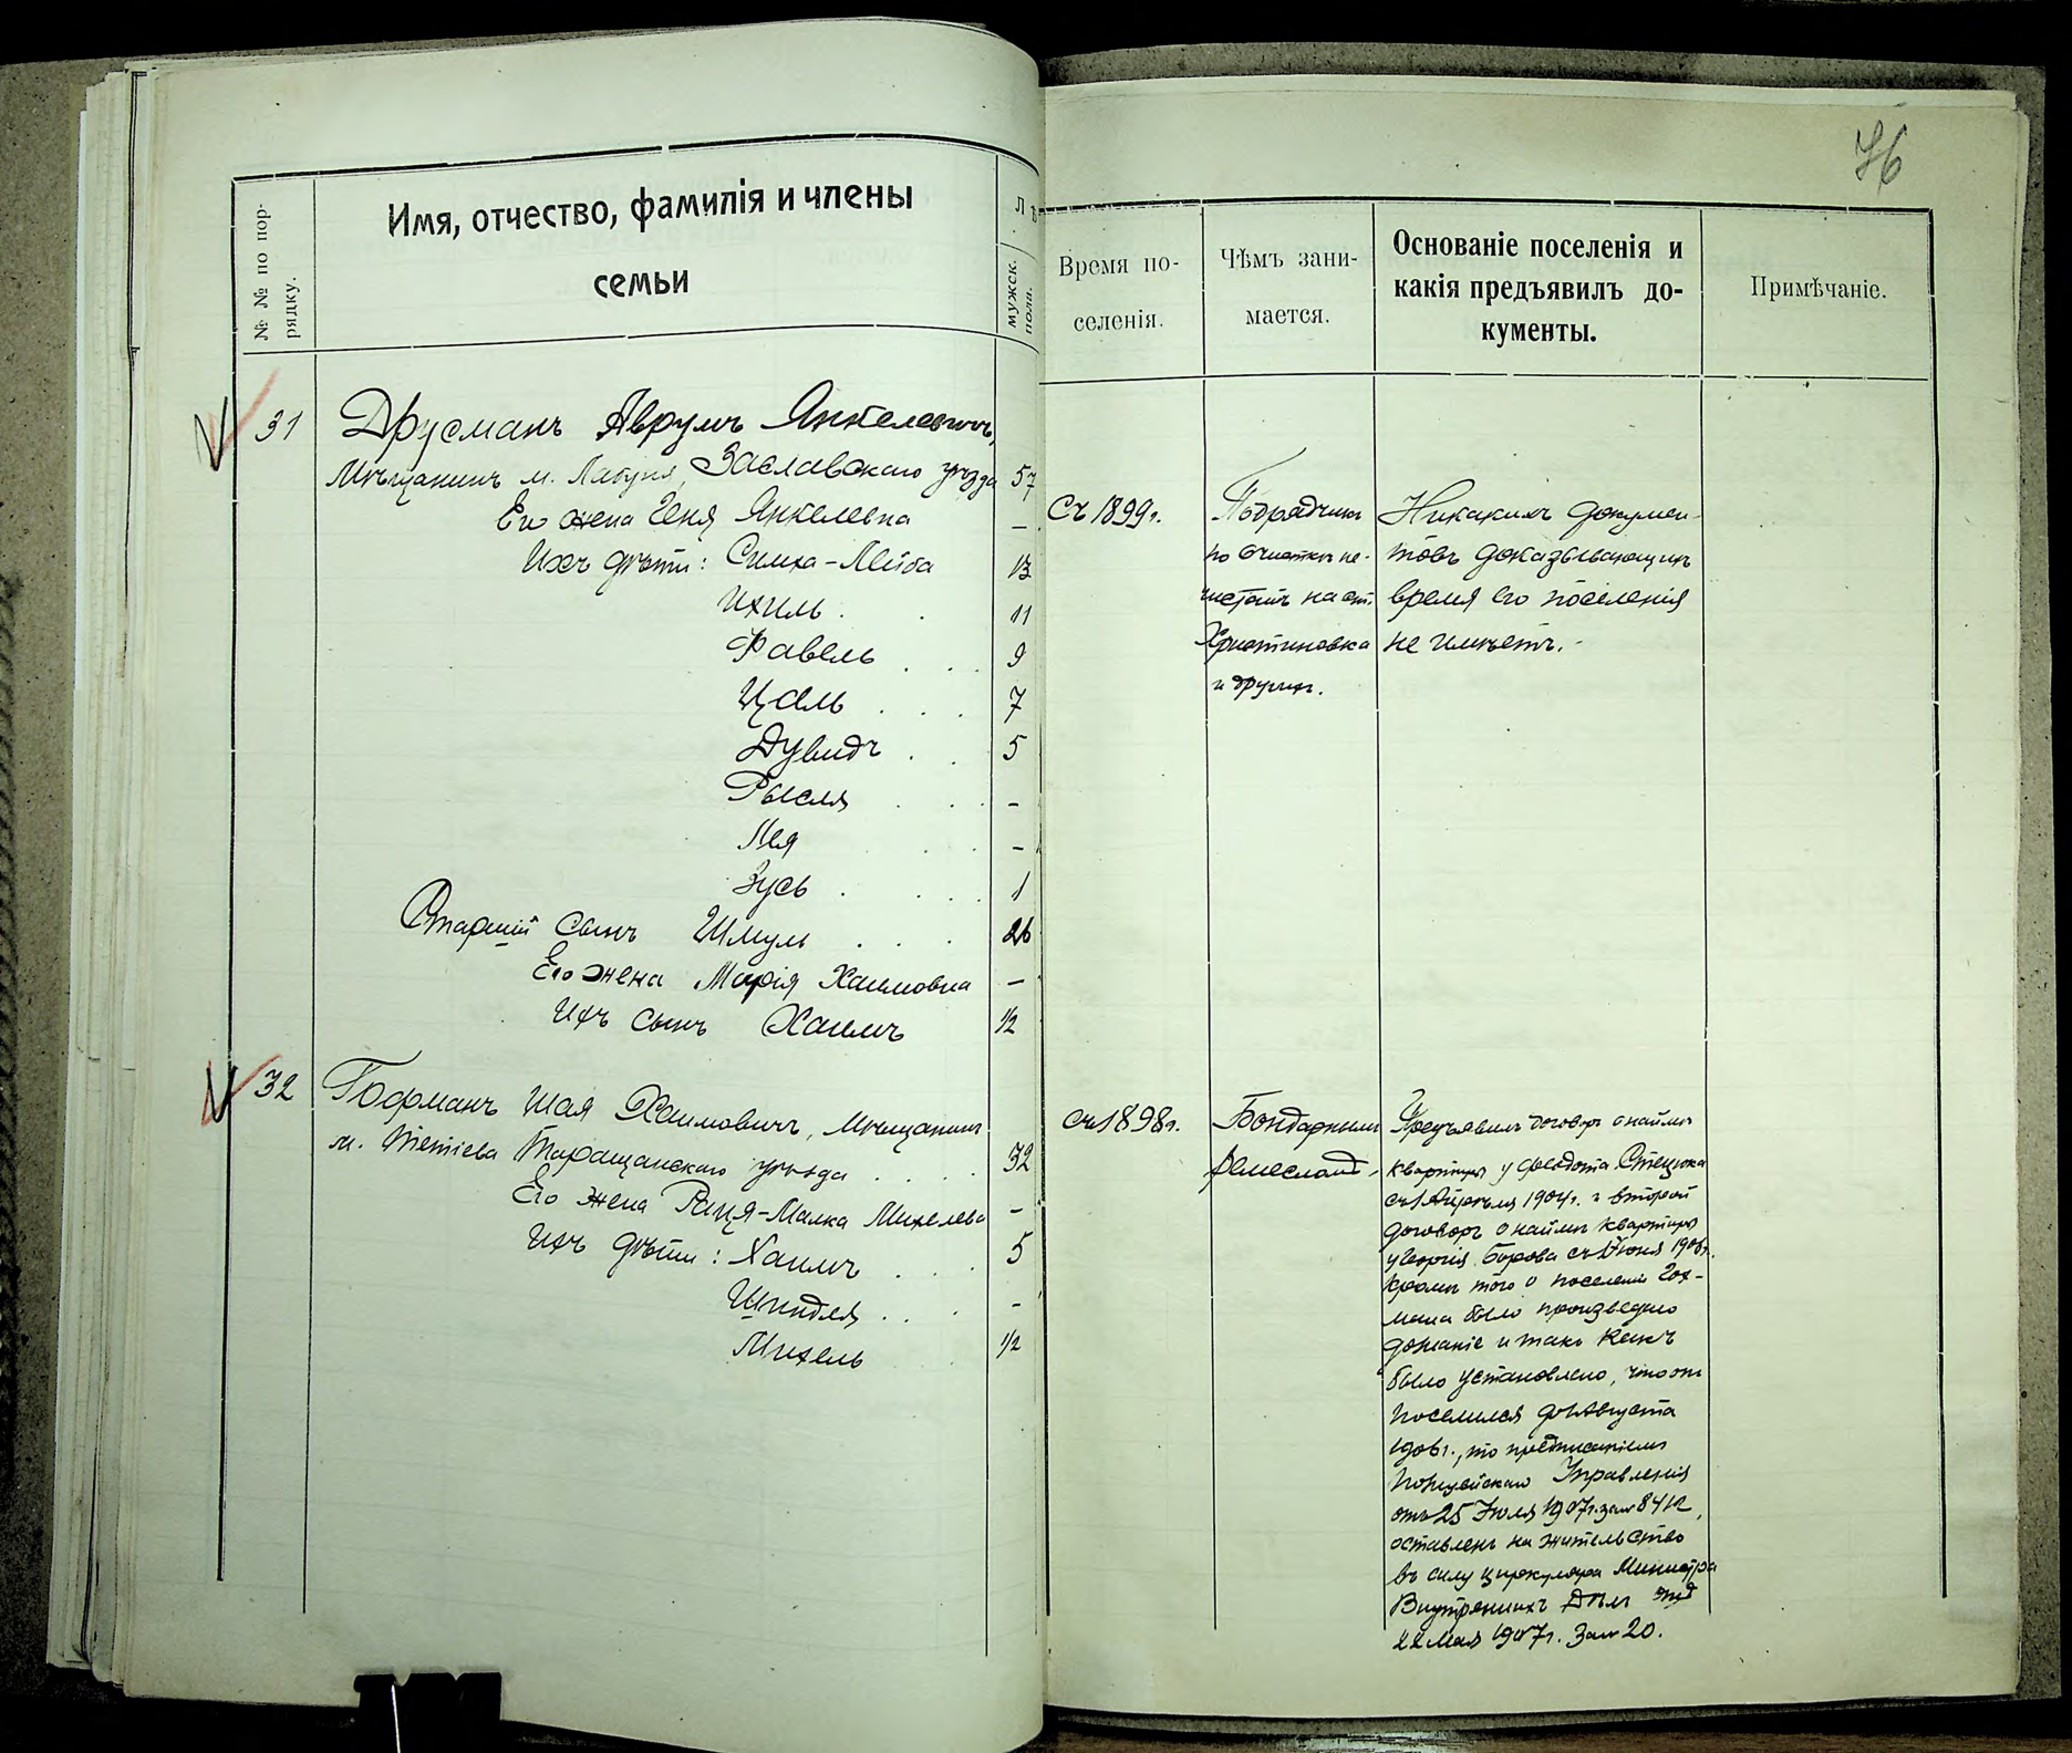 № № по пор-
рядку.
Имя, отчество, фамилія и члены
семьи
Л ѣ
мужск.
пола.
31
Друсманъ Аврумъ Янкелевичъ,
Мѣщанинъ м. Лабуня, Заславскаго уѣзда 57
Его жена Геня Янкелевна –
Ихъ дѣти: Симха-Лейба 13
Ихиль 11
Фавель 9
Цаль 7
Дувидъ 5
Рысля –
Лея –
Зусь 1
Старшій сынъ Шмуль 26
Его жена Марія Хаимовна –
Ихъ сынъ Хаимъ 1/2
32
Гофманъ Шая Хаимовичъ, Мѣщанинъ
м. Тетіева Таращанскаго уѣзда 32
Его жена Раиця-Малка Михелева –
Ихъ дѣти: Хаимъ 5
Шиндля –
Михель 1/2
76
Время по-
селенія.
Чѣмъ зани-
мается.
Основаніе поселенія и
какія предъявилъ до-
кументы.
Примѣчаніе.
Съ 1899г.
Подрядчикъ
по очисткѣ не-
чистотъ на ст.
Христиновка
и другихъ.
Никакихъ докумен-
товъ доказывающихъ
время его поселенія
не имѣетъ.-
съ 1898г.
Бондарнымъ
ремесломъ
Предъявилъ договоръ о наймѣ
квартиры у Федота Стецюка
съ 1 Апрѣля 1904г. и второй
договоръ о наймѣ квартиры
у Георгія Борова съ Іюня 1906г.
кромѣ того о поселеніи Гох-
мана было произведено
дознаніе и такъ какъ
было установлено, что онъ
поселился до 1 Августа
1906г., то предписаніемъ
Полицейскаго Управленія
отъ 25 Іюля 1907г. за № 8412,
оставленъ на жительство
въ силу циркуляра Министра
Внутреннихъ Дѣлъ отъ
22 Мая 1907г. за № 20.